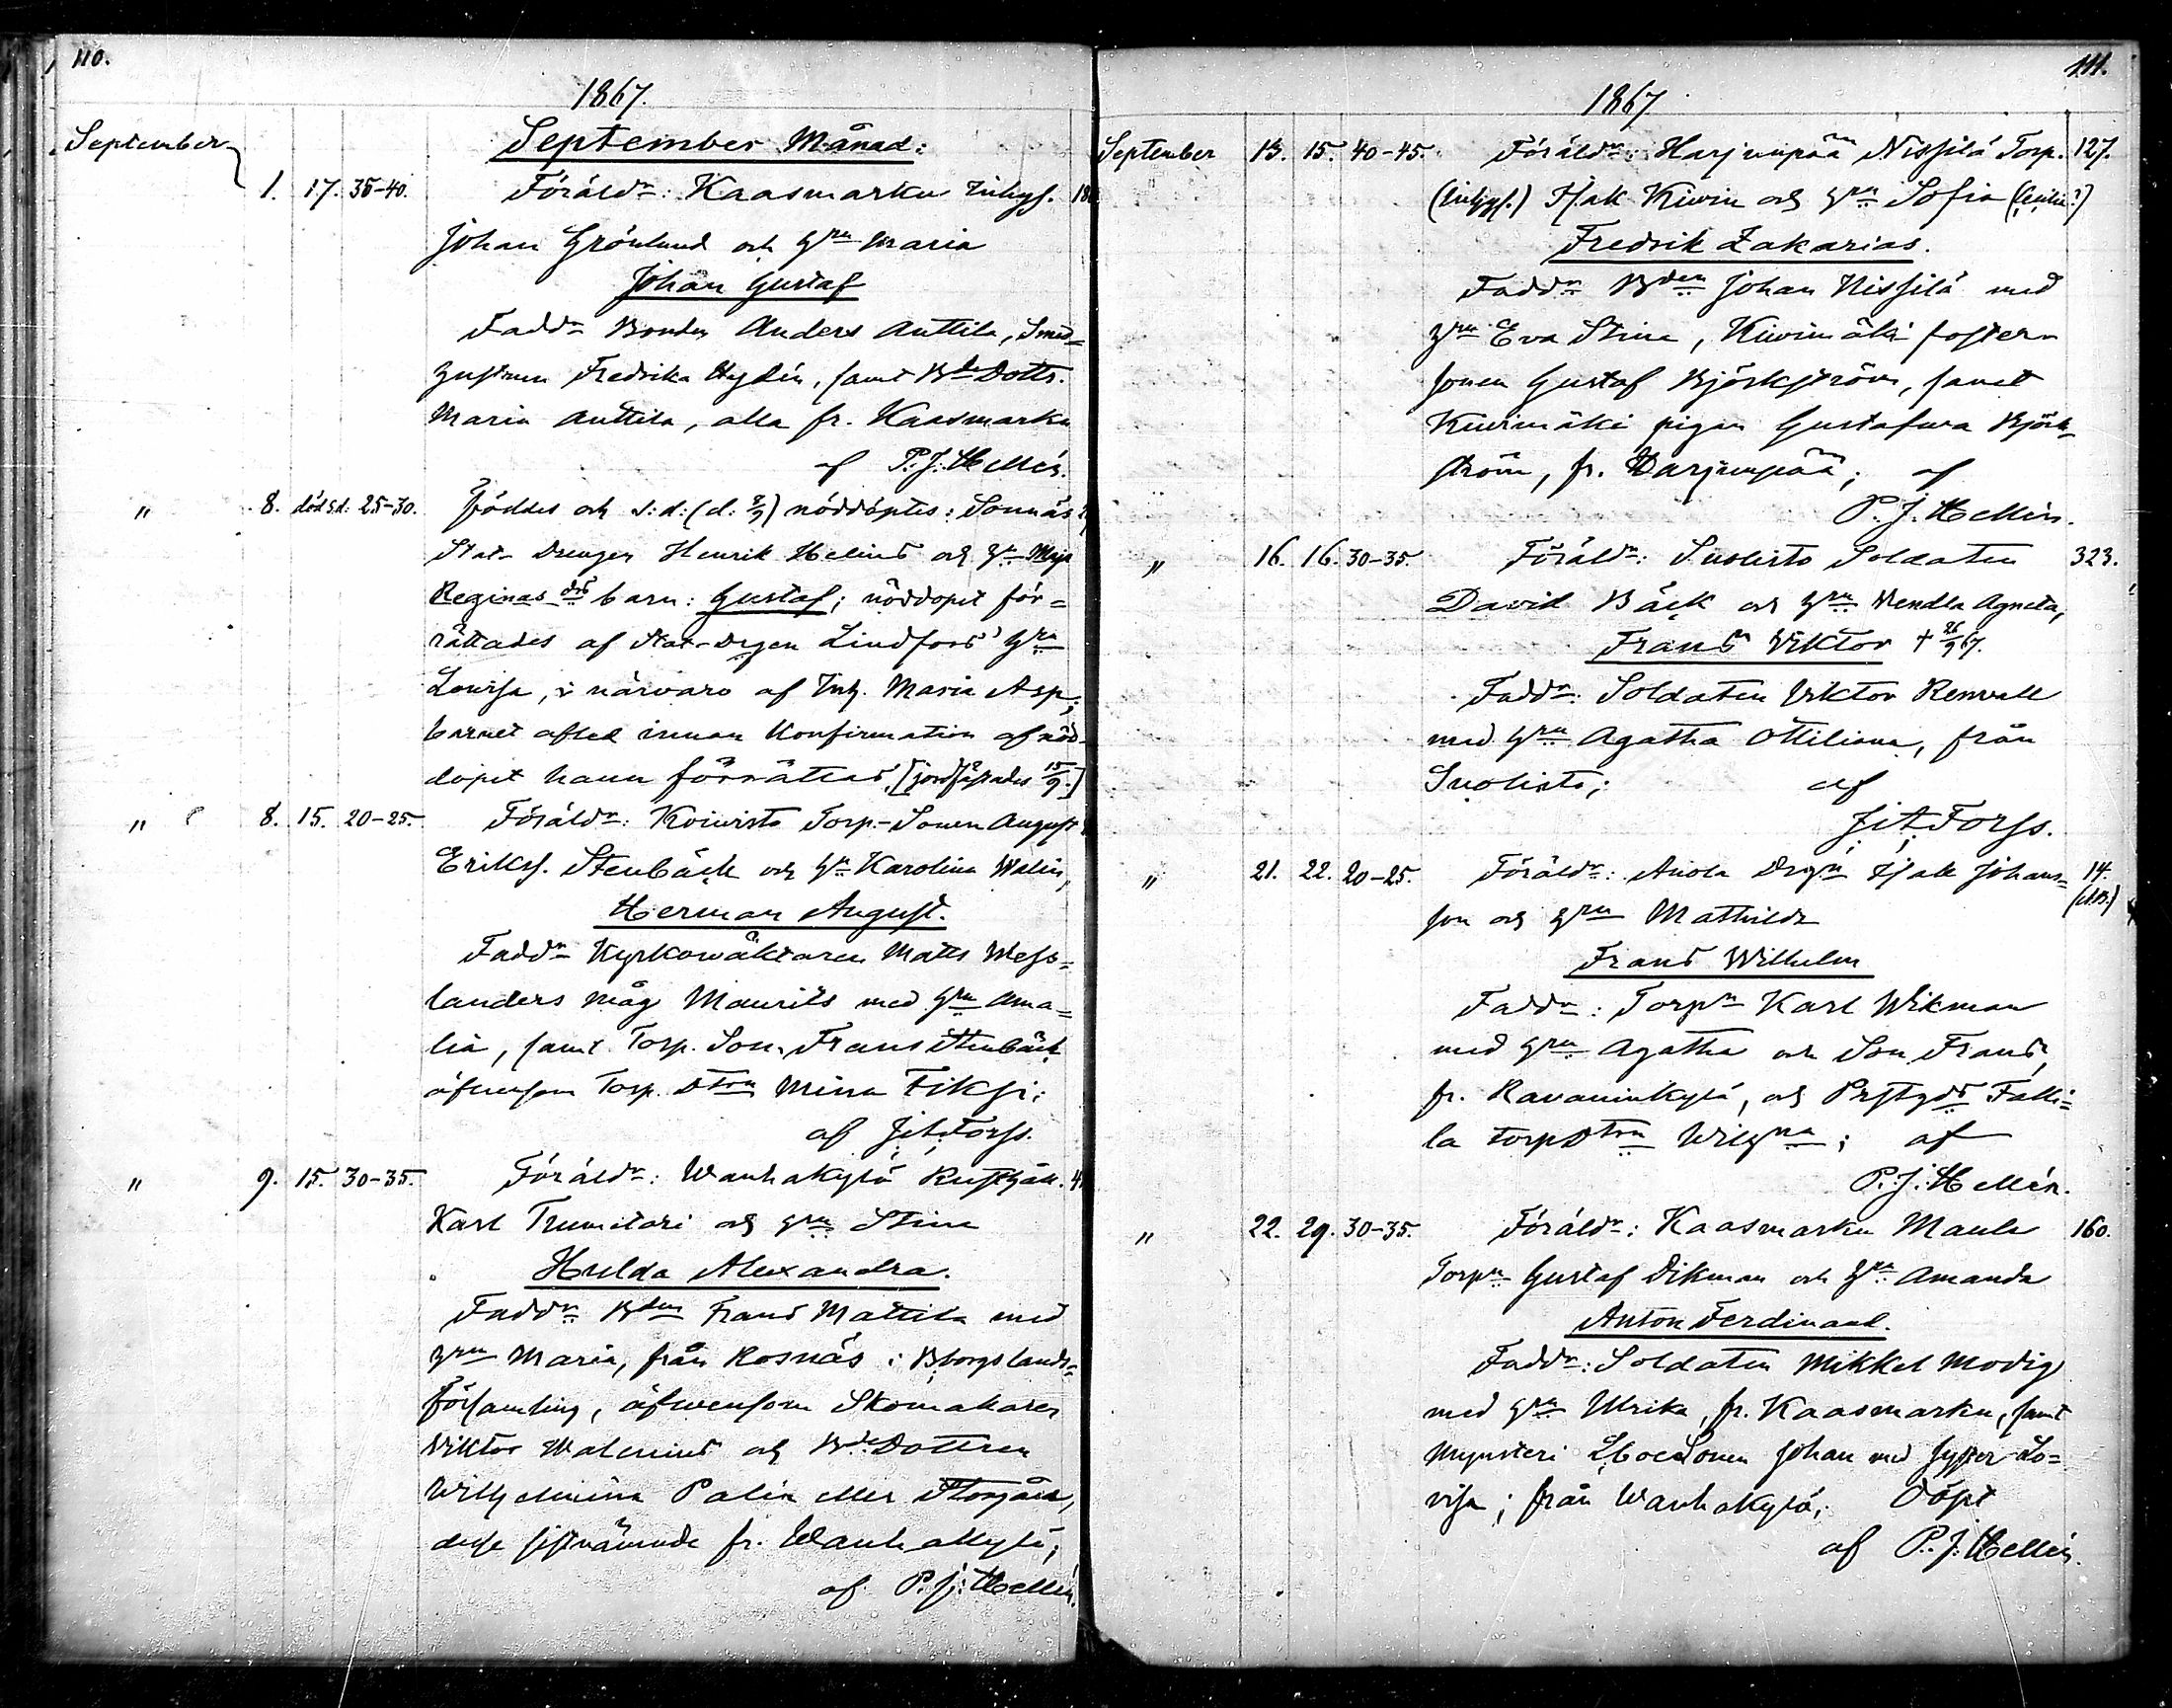 110.
1867.
September
September Månad:
1. 17. 35-40. Föräldr: Kaasmarku Inhys. 18
Johan Grönlund och Hru Maria
Johan Gustaf
Faddr Bonden Anders Anttila, Smed=
hustrun Fredrika Hydén, samt Bde Dottr.
Maria Anttila, alla fr. Kaasmarku
af P.J. Hellén.
" 8. död s.d: 25-30. Föddes och s:d: (d: 8/9) nöddöptes: Sonnäs
Stat-Drengen Henrik Helins och Hr Maja
Reginas barn: Gustaf; nöddopet för=
rättades af Stat-Drgen Lindfors' Hru
Lovisa, i närvaro af Inh. Maria Asp;
barnet afled innan Konfirmation af nöd-
dopet hann förrättas, [jordfästades 15/9.]
" 8. 15. 20-25. Föräldr: Koivisto Torp.-Sonen August
Eriks. Stenbäck och Hr Karolina Walin,
Herman August.
Faddr Kyrkowäktaren Matts Wess=
landers måg Maurits med Hru Ama=
lia, samt Torp. Son. Frans Stenbäck
äfvensom Torp. Dtrn Mina Fiksi;
af J:A: Forss.
" 9. 15. 30-35. Föräldr: Wanhakylä Rusthåll. 4
Karl Trumetari och Hru Stina
Hulda Alexandra.
Faddr Bden Frans Mattila med
Hru Maria, från Rosnäs i Bborgs lands=
församling, äfvensom Skomakaren
Viktor Walenius och Bde Dottren
Wilhelmina Palin eller Storgård,
desse sistnämnde fr. Wanhakylä;
af P.J: Hellén.
111.
1867
September 13. 15. 40-45. Föräldr: Harjunpää Nissilä Torp. 127.
(Inhys.) Isak Kiwin och Hru Sofia
Fredrik Zakarias.
Faddr Bden Johan Nissilä med
Hru Eva Stina, Kiwimäki foster-
sonen Gustaf Björkström, samt
Kiwimäki pigan Gustafwa Björk=
ström, fr. Harjunpää; af
P.J. Hellén.
" 16. 16. 30-35. Föräldr: Suolisto Soldaten 323.
David Bäck och Hru Wendla Agneta,
Frans Viktor † 26/9 67.
Faddr: Soldaten Viktor Renvall
med Hru Agatha Ottiliana, från
Suolisto; af
J:A: Forss.
" 21. 22. 20-25. Föräldr: Anola Drgn Isak Johans= 14.
son och Hru Mathilda
Frans Wilhelm
Faddr: Torpn Karl Wikman
med Hru Agatha och Son Frans,
fr. Ravaninkylä, och Prstgds Falli=
la torpDtrn Wilhna; af
P.J: Hellén.
" 22. 29. 30-35. Föräldr: Kaasmarku Maula 160.
Torpn Gustaf Dikman och Hru Amanda
Anton Ferdinand.
Faddr: Soldaten Mikkel Modig
med Hru Ulrika, fr. Kaasmarku, samt
Johan med syster Lo=
visa; från Wanhakylä; Döpt
af P.J: Hellén.